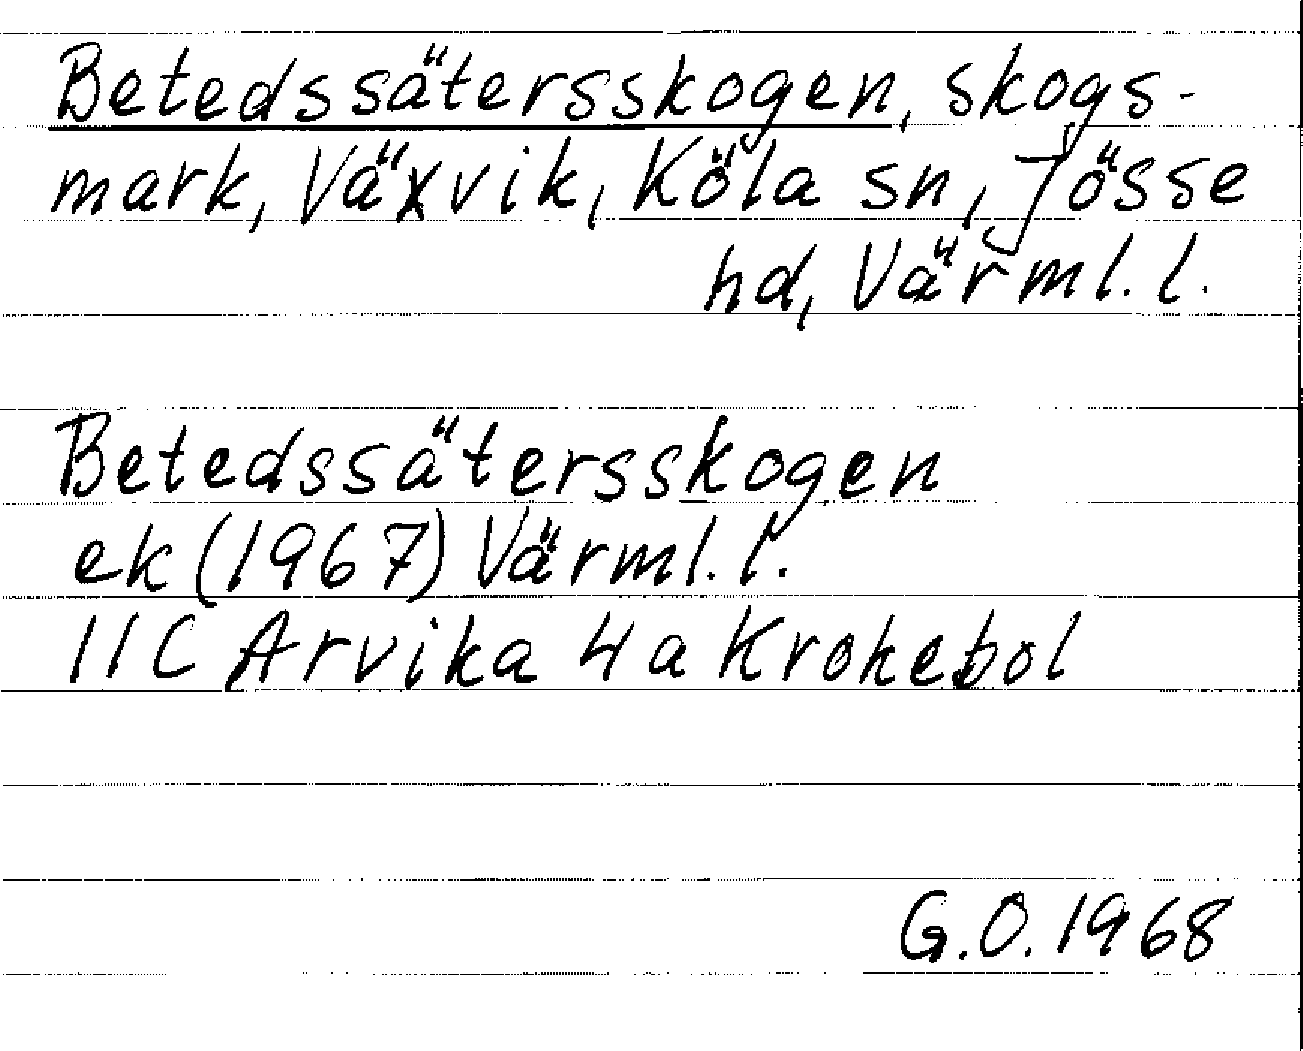 Betedssätersskogen, skogs-
mark, Växvik, Köla sn, Jösse
hd, Värml. l.
Betedssätersskogen
ek (1967) Värml. l.
11C Arvika 4a Krokebol
G.O. 1968